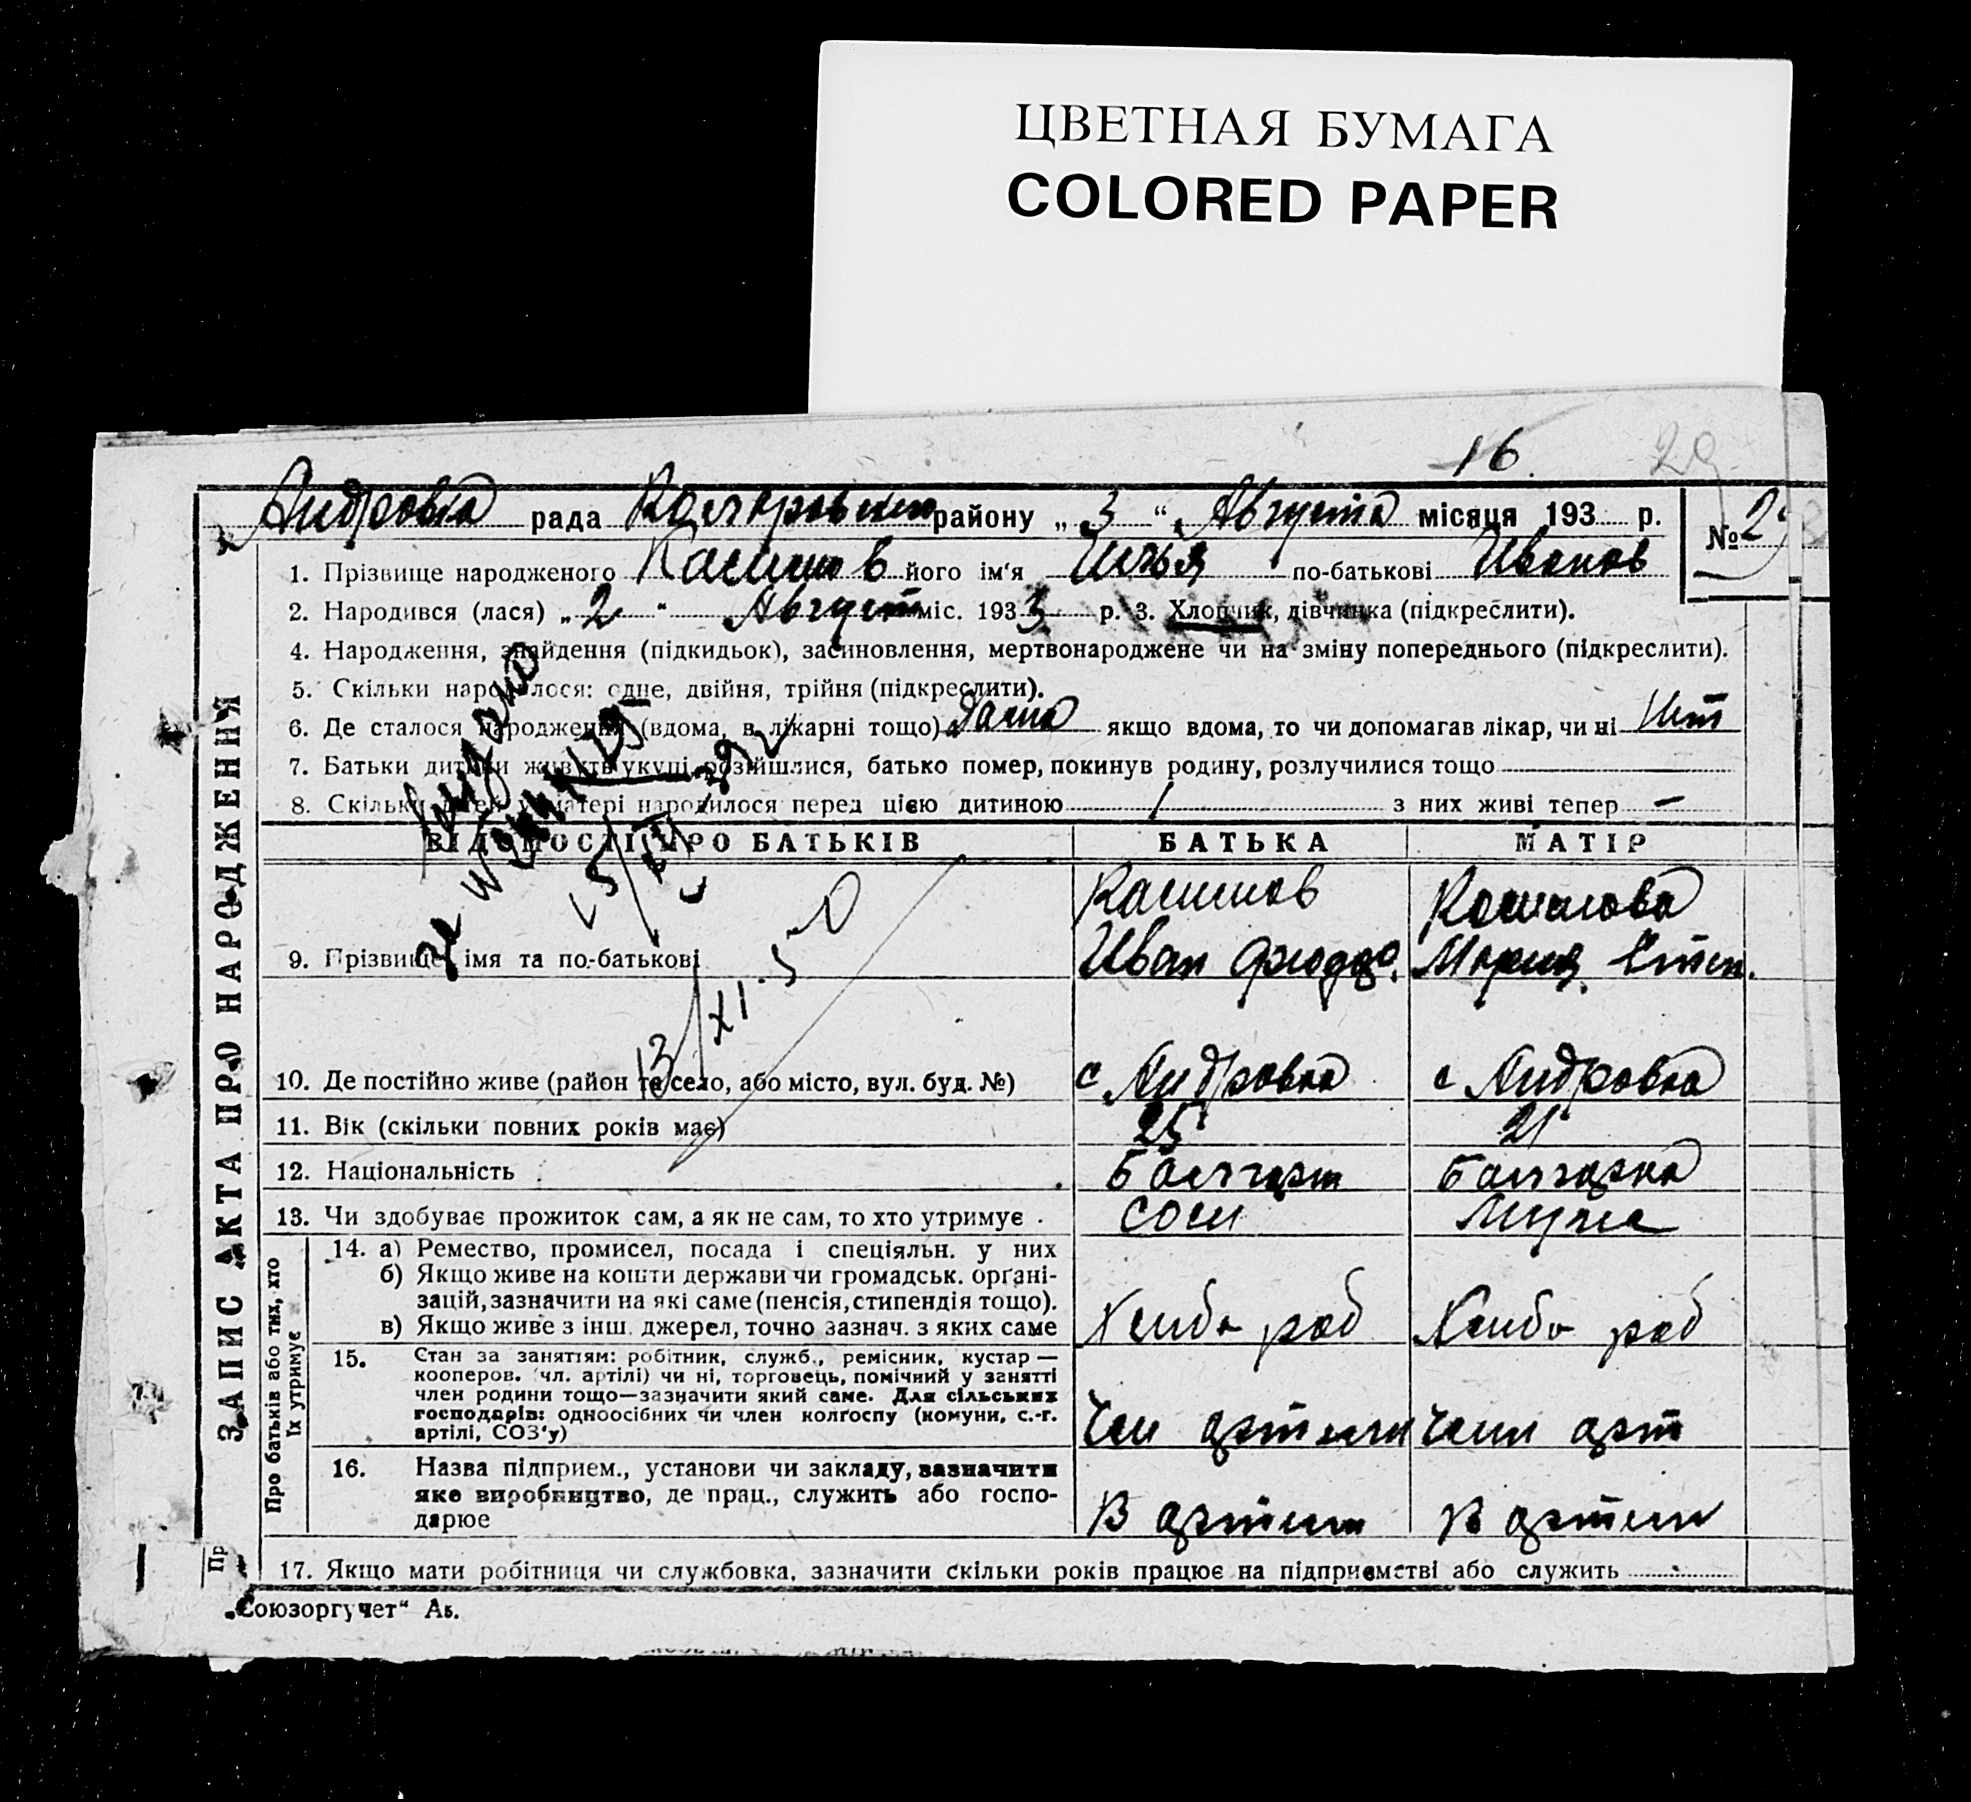 ЦВЕТНАЯ БУМАГА
COLORED PAPER
16. 29
Андровка рада районy „ 3 “ Августа місяця 193 р. № 29
1. Прізвище народженого Касимов його ім'я Илья по-батькові Иванов
2. Народився (лася) „ 2 “ Август міс. 1933 р. 3. Хлопчик, дівчинка (підкреслити).
4. Народження, знайдення (підкидьок), засиновлення, мертвонароджене чи на зміну попереднього (підкреслити).
5. Скільки народилося: одне, двійня, трійня (підкреслити).
6. Де сталося народження (вдома, в лікарні тощо) Дома якщо вдома, то чи допомагав лікар, чи ні Нет
7. Батьки дитини живуть укупі, розійшлися, батько помер, покинув родину, розлучилися тощо
8. Скільки дітей у матері народилося перед цією дитиною 1 з них живі тепер —
ВІДОМОСТІ ПРО БАТЬКІВ БАТЬКА МАТІР
Касимов Касимова
9. Прізвище, імя та по-батькові Иван Мария Степ.
13/XI-50
10. Де постійно живе (район та село, або місто, вул. буд. №) с Андровка с Андровка
11. Вік (скільки повних років має) 25 21
12. Національність Балгарт Балгарка
13. Чи здобуває прожиток сам, а як не сам, то хто утримує Сам Муже
14. а) Ремество, промисел, посада і спеціяльн. у них
б) Якщо живе на кошти держави чи громадськ. орґані-
зацій, зазначити на які саме (пенсія, стипендія тощо).
в) Якщо живе з інш. джерел, точно зазнач. з яких саме Хлибо роб Хлибо роб
15. Стан за заняттям: робітник, служб., ремісник, кустар —
кооперов. (чл. артілі) чи ні, торговець, помічний у занятті
член родини тощо—зазначити який саме. Для сільських
господарів: одноосібних чи член колґоспу (комуни, с.-г.
артілі, СОЗ'у) Член артели Член арт
16. Назва підприєм., установи чи закладу, зазначити
яке виробництво, де прац., служить або госпо-
дарює В артели В артели
17. Якщо мати робітниця чи службовка, зазначити скільки років працює на підприємстві або служить
„Союзоргучет“ Аь.
ЗАПИС АКТА ПРО НАРОДЖЕННЯ
Про батьків або тих, хто
їх утримує
Пр